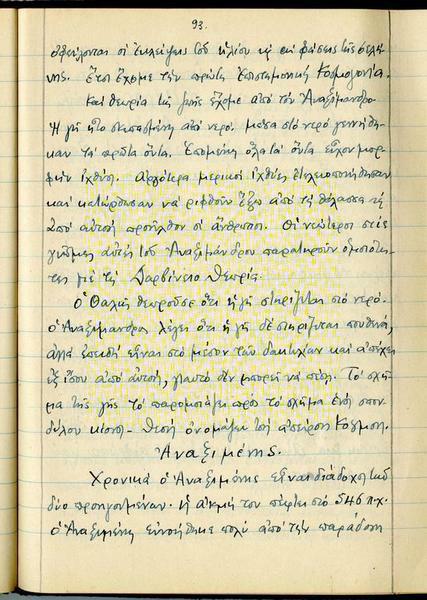 93.
ὀφείλονται οἱ ἐκλείψεις τοῦ ἡλίου κὶ αἱ φάσεις τῆς σελή-
νης. Ἔτσι ἔχομε τὴν πρώτη ἐπιστημονικὴ Κοσμογονία.
Καὶ θεωρία τῆς ζωῆς ἔχομε ἀπὸ τὸν Ἀναξίμανδρο
Ἡ γῆ ἦτο σκεπασμένη ἀπὸ νερό. μέσα στὸ νερὸ γεννήθη-
καν τὰ πρῶτα ὄντα. Ἑπομένη ὅλα τὰ ὄντα εἶχον μορ-
φὴν ἰχθύος. Ἀργότερα μερικοὶ ἰχθύες
καὶ κατώρθωσαν νὰ ριφθοῦν ἔξω ἀπὸ τὴ θάλασσα κὶ
ἀπὸ αὐτοὺ προῆλθον οἱ ἄνθρωποι. Οἱ νεώτεροι στὶς
γνῶμες αὐτὲς τοῦ Ἀναξιμάνδρου παρατηροῦν ὁμοιότη-
τες μὲ τὴ Δαρβίνειο θεωρία.
Ὁ Θαλῆς θεωροῦσε ὅτι ἡ γῆ στηρίζεται στὸ νερό.
ὁ Ἀναξίμανδρος λέγει ὅτι ἡ γῆ δὲ στηρίζεται πουθενά,
ἀλλὰ ἐπειδὴ εἶναι στὸ μέσον τῶν δακτυλίων καὶ ἀπέχει
ἐξ ἴσου ἀπὸ αὐτούς, γιαυτὸ δὲν μπορεῖ νὰ πέσῃ. Τὸ σχῆ-
μα τῆς γῆς τὸ παρομοιάζει πρὸς τὸ σχῆμα ἑνὸς σπον-
δύλου κίονος. Θεοὺς ὀνομάζει τοὺς ἀπείρους Κόσμους.
Ἀναξιμένης.
Χρονικὰ ὁ Ἀναξιμένης εἶναι διάδοχος τῶν
δύο προηγουμένων. ἡ ἀκμή του πέφτει στὸ 546 π.χ.
ὁ Ἀναξιμένης εὐνοήθηκε πολὺ ἀπὸ τὴν παράδοση